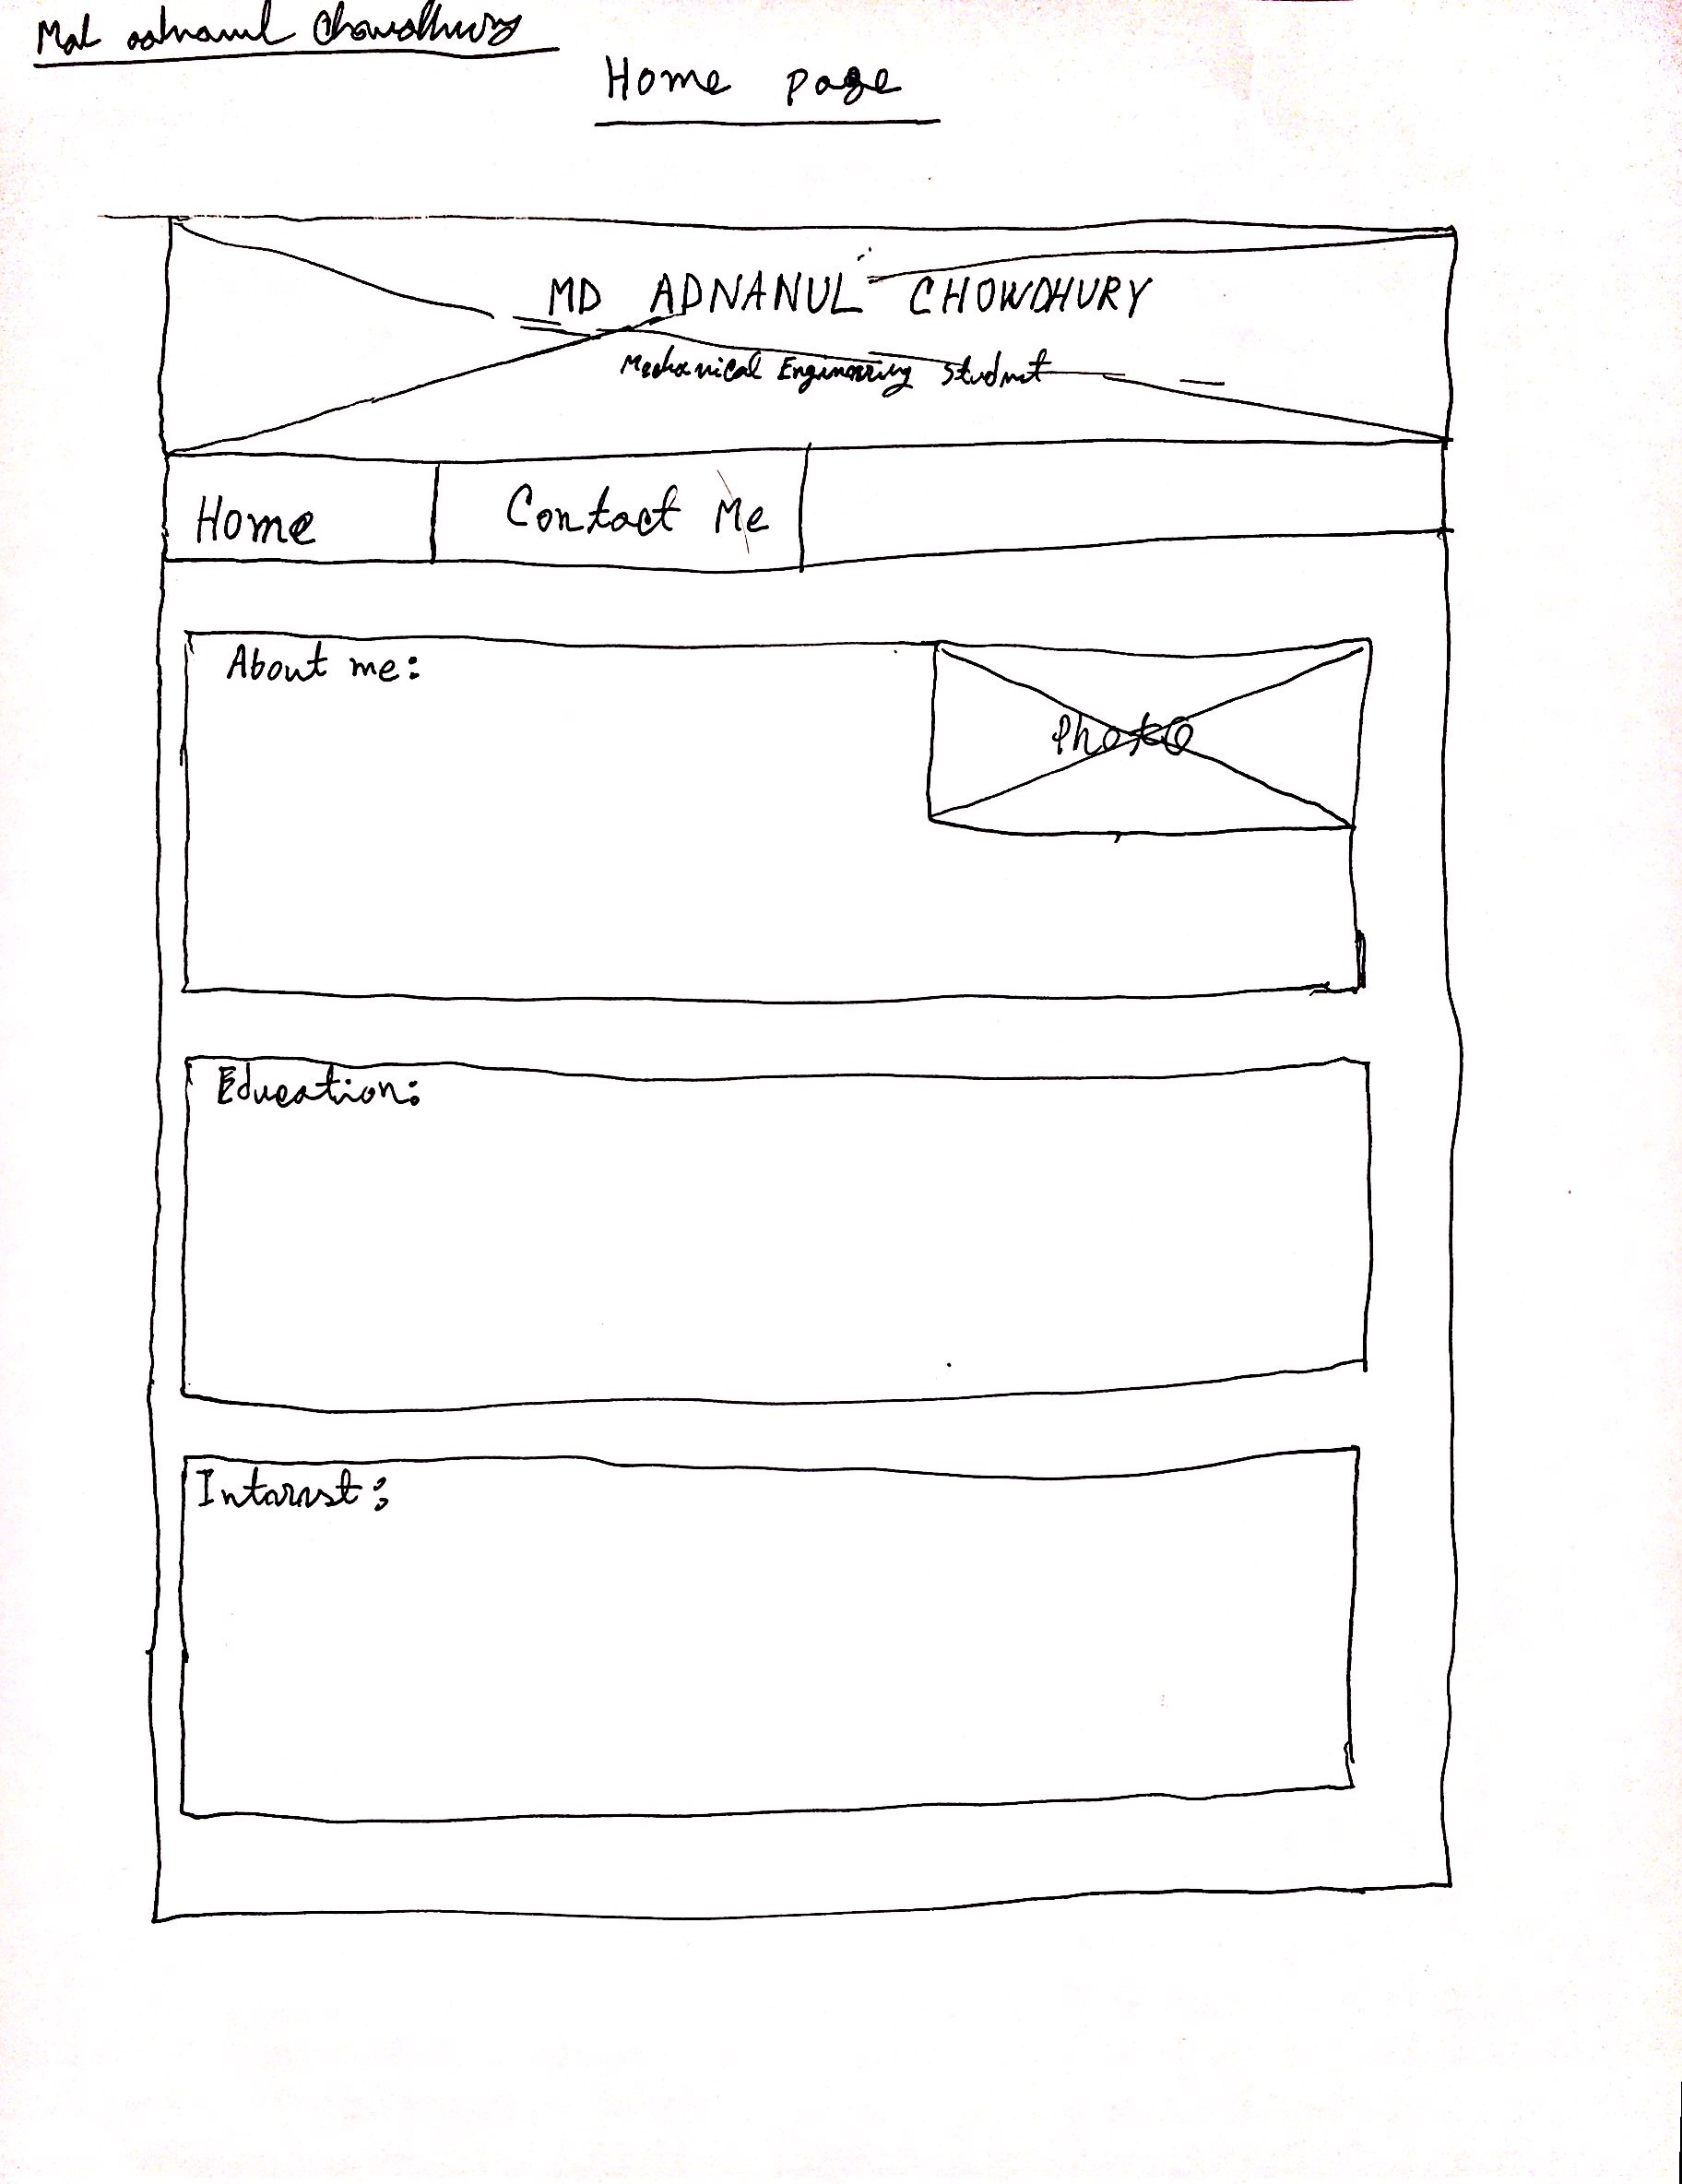 Md adnanul Chowdhury
Home page
MD ADNANUL CHOWDHURY
Mechanical Engineering Student
Home
Contact Me
About me:
Photo
Education:
Interest: